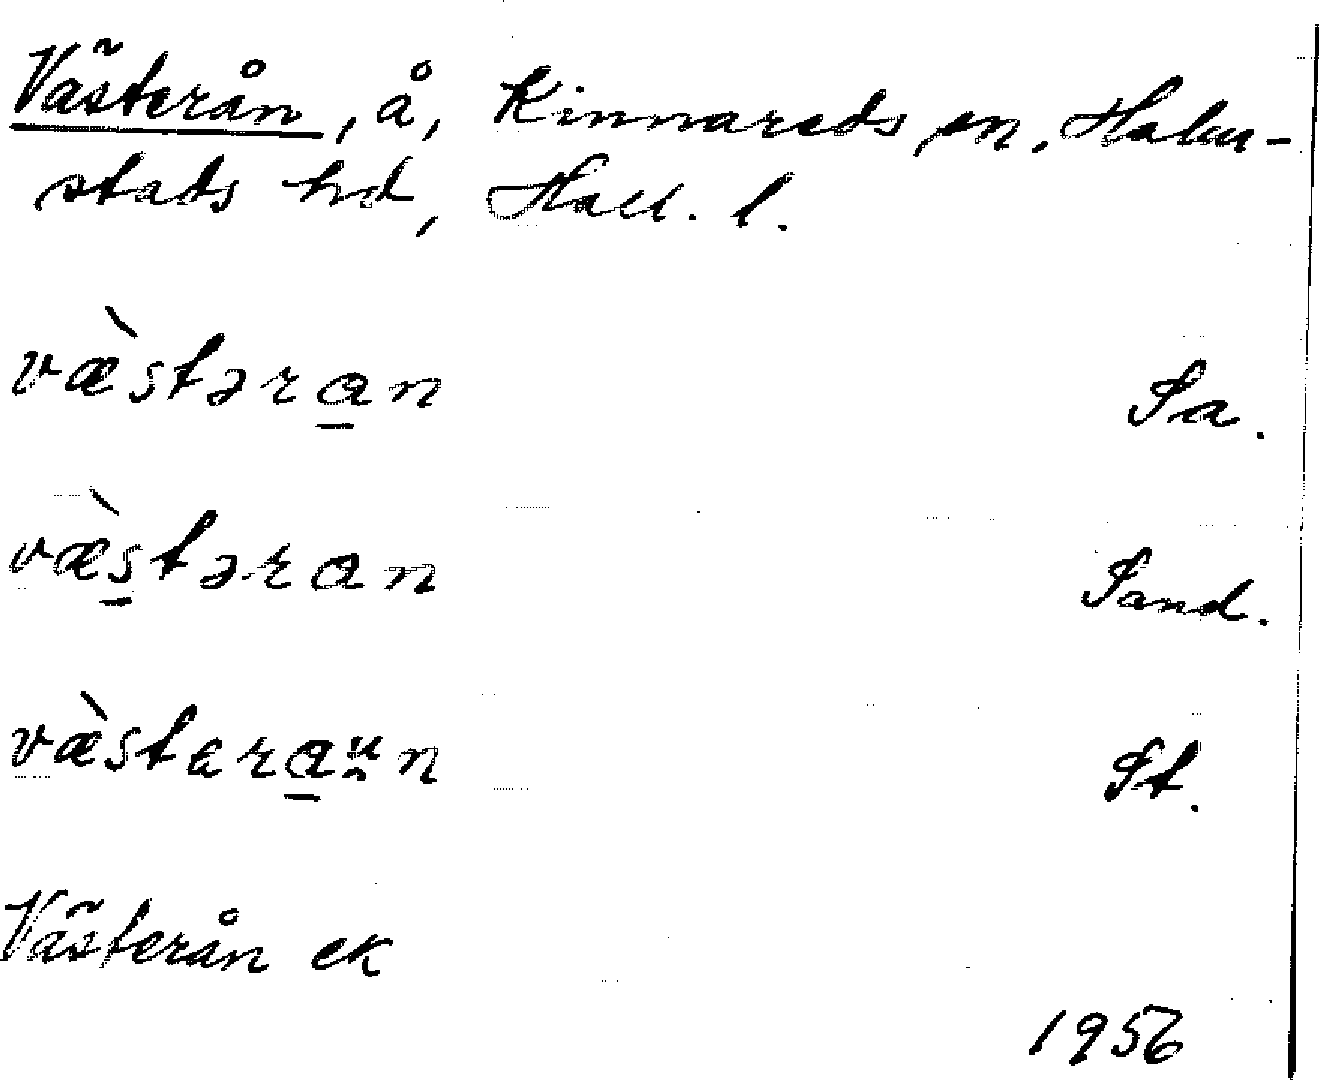 Västerån, å, Kinnareds sn, Halm-
stads hd, Hall. l.
væ̀stəra̱n Sa.
væ̀s̱təran Sand.
væ̀stɛra̱u̯n St.
Västerån ek
1956